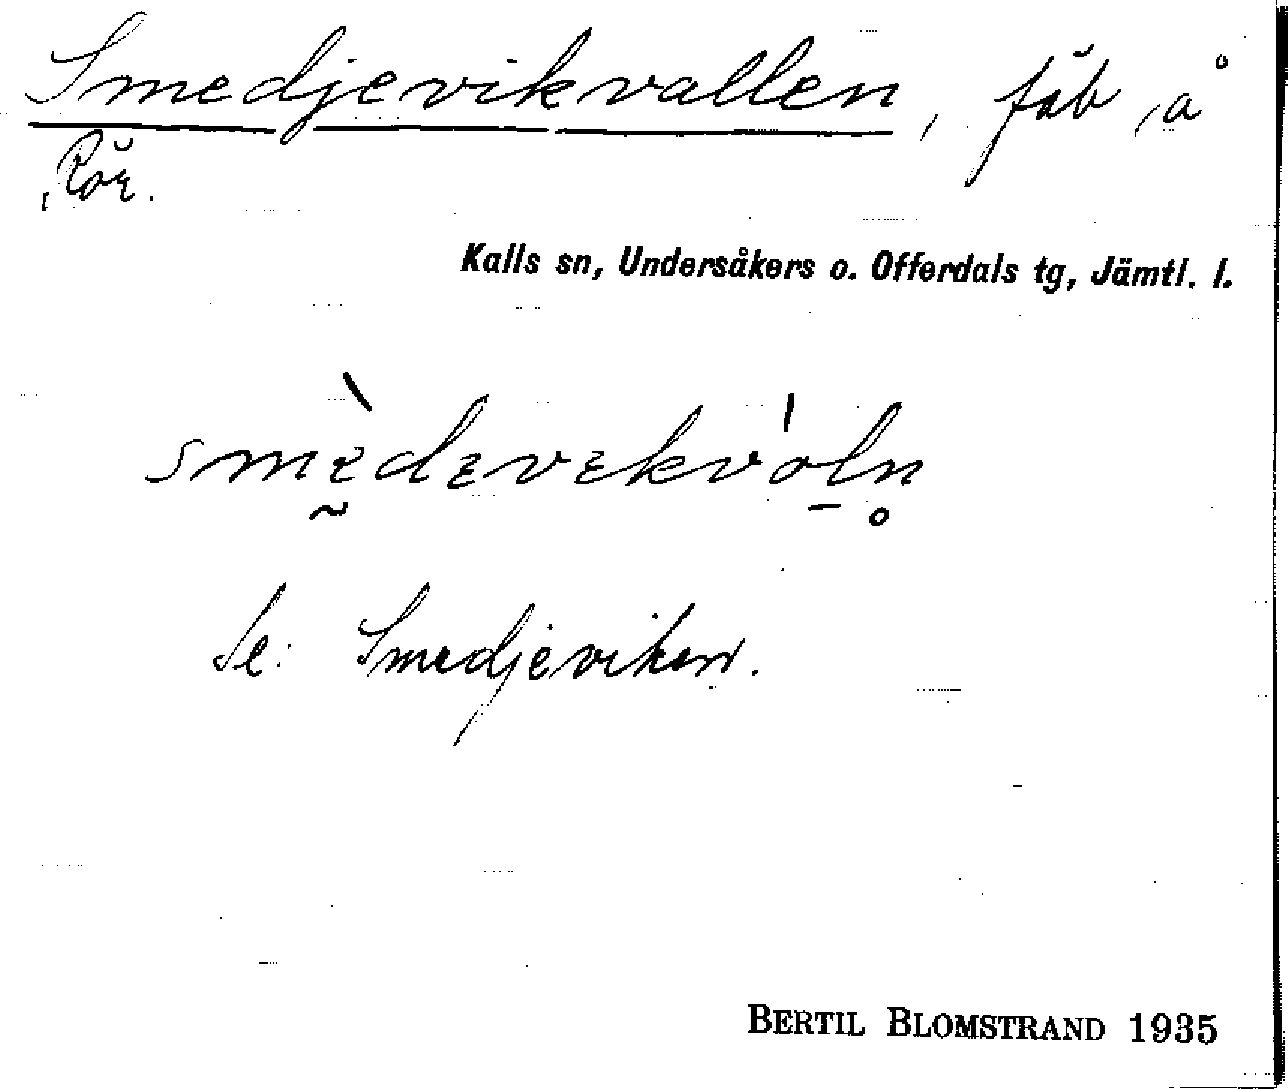 Smedjevikvallen, fäb å
Rör.
Kalls sn, Undersåkers o. Offerdals tg, Jämtl. l.
smèdεvεkvåln
Se: Smedjeviken.
BERTIL BLOMSTRAND 1935